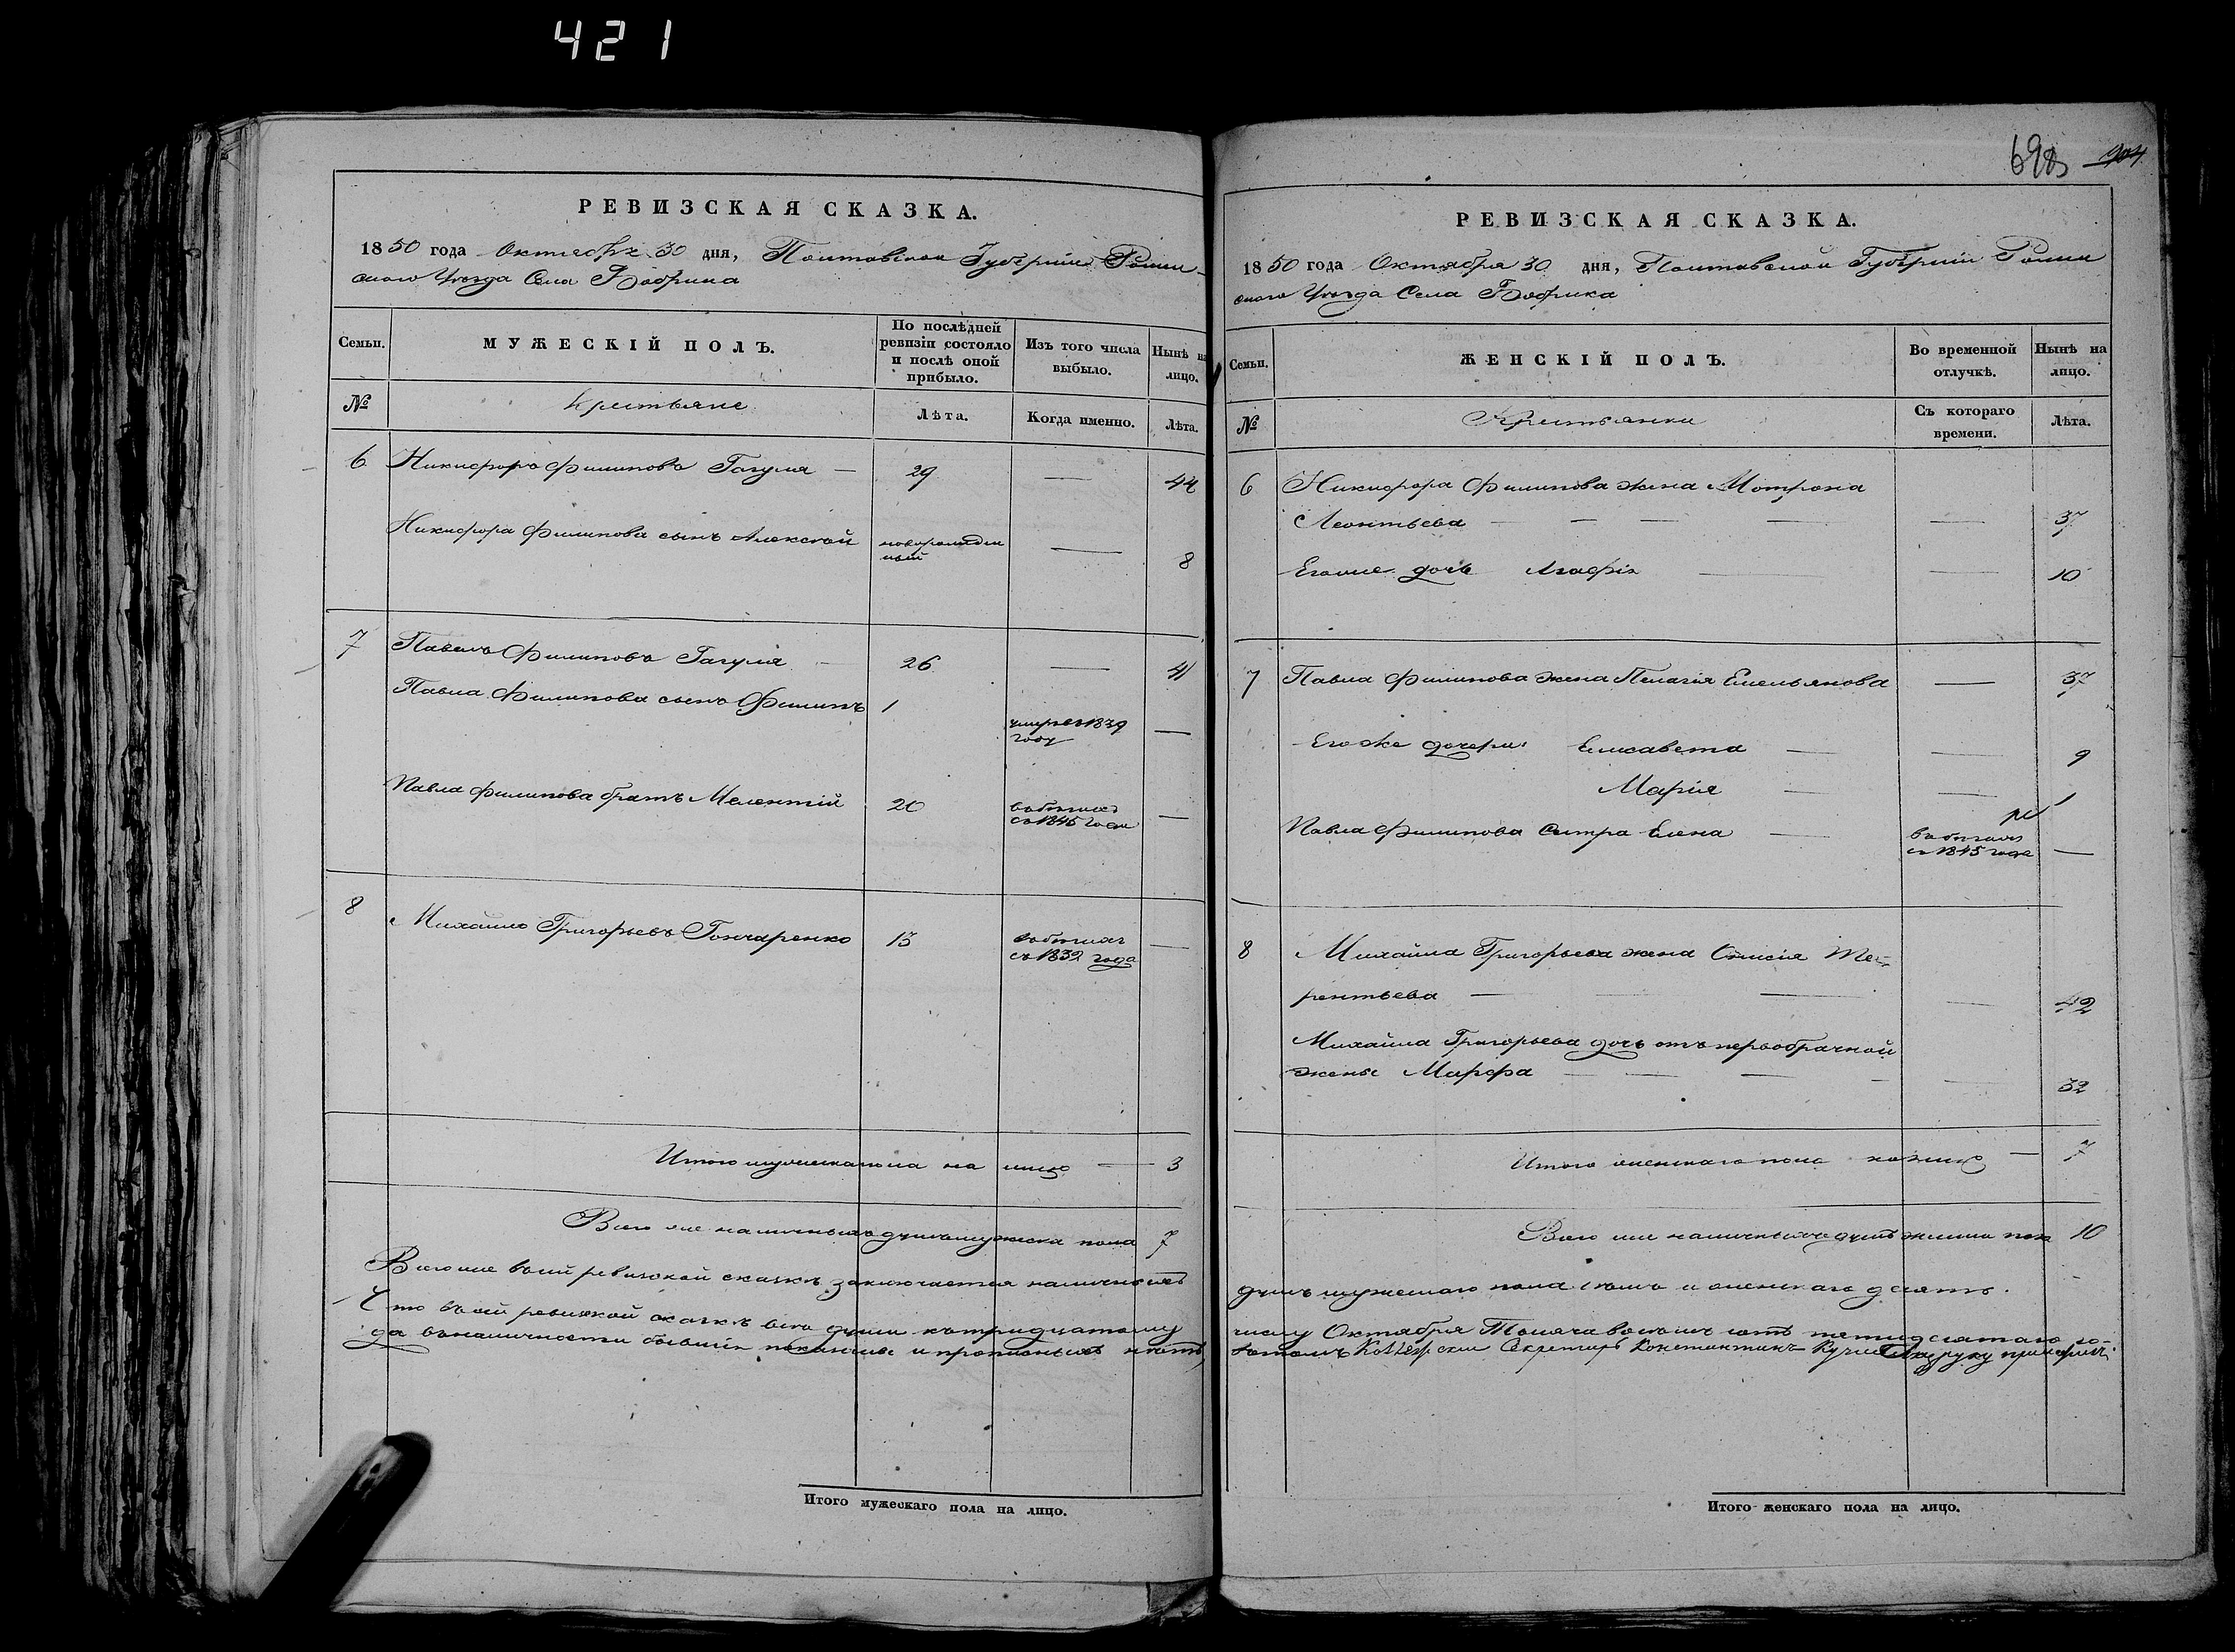 421
698 904
РЕВИЗСКАЯ СКАЗКА.
1850 года Октября 30 дня, Полтавской Губернии Ромен-
скаго Уезда Села Бобрика
Семьи.
МУЖЕСКІЙ ПОЛЪ.
По послѣдней ревизіи состояло и послѣ оной прибыло.
Изъ того числа выбыло.
Нынѣ на лицо.
№
Крестьяне
Лѣта.
Когда именно.
Лѣта.
6 Никифоръ Филиповъ Гагуля — 29 — 44
Никифора Филипова сынъ Алексѣй новорожден
ный — 8
7 Павелъ Филиповъ Гагуля — 26 — 41
Павла Филипова сынъ Филипъ 1 умръ въ 1839
году —
Павла Филипова братъ Мелентій 20 въ бегахъ
съ 1845 года —
8 Михайло Григорьевъ Гончаренко 13 въ бегахъ
съ 1832 года —
Итого мужеска пола на лицо — 3
Всего же наличныхъ душъ мужеска пола 7
Всего же въ сей ревизской сказкѣ заключается наличныхъ
Что въ сей ревизской сказкѣ всѣ души къ тридцатому
да въ наличности бывшія показаны и прописныхъ нѣтъ,
Итого мужескаго пола на лицо.
РЕВИЗСКАЯ СКАЗКА.
1850 года Октября 30 дня, Полтавской Губерніи Ромен
скаго Уезда Села Бобрика
Семьи.
ЖЕНСКІЙ ПОЛЪ.
Во временной отлучкѣ.
Нынѣ на лицо.
№
Крестьянки
Съ котораго времени.
Лѣта.
6 Никифора Филипова жена Мотрона
Леонтьева — — — — — 37
Егоже дочь Агафія — — 10
7 Павла Филипова жена Пелагія Емельянова — 37
Егоже дочери: Елисавета — — 9
Марія — — 1
Павла Филипова сестра Елена — въ бегахъ
съ 1845 года —
8 Михайла Григорьева жена Те-
рентьева — — — 42
Михайла Григорьева дочь отъ первобрачной
жены Марфа — — — — — 32
Итого женскаго пола на лицо — 7
Всего же наличныхъ душъ женска пола 10
душъ мужескаго пола семь и женскаго десять.
числу Октября Тысяча восемь сотъ пятидесятаго го-
въ томъ Секретарь Константинъ руку приложилъ
Итого женскаго пола на лицо.